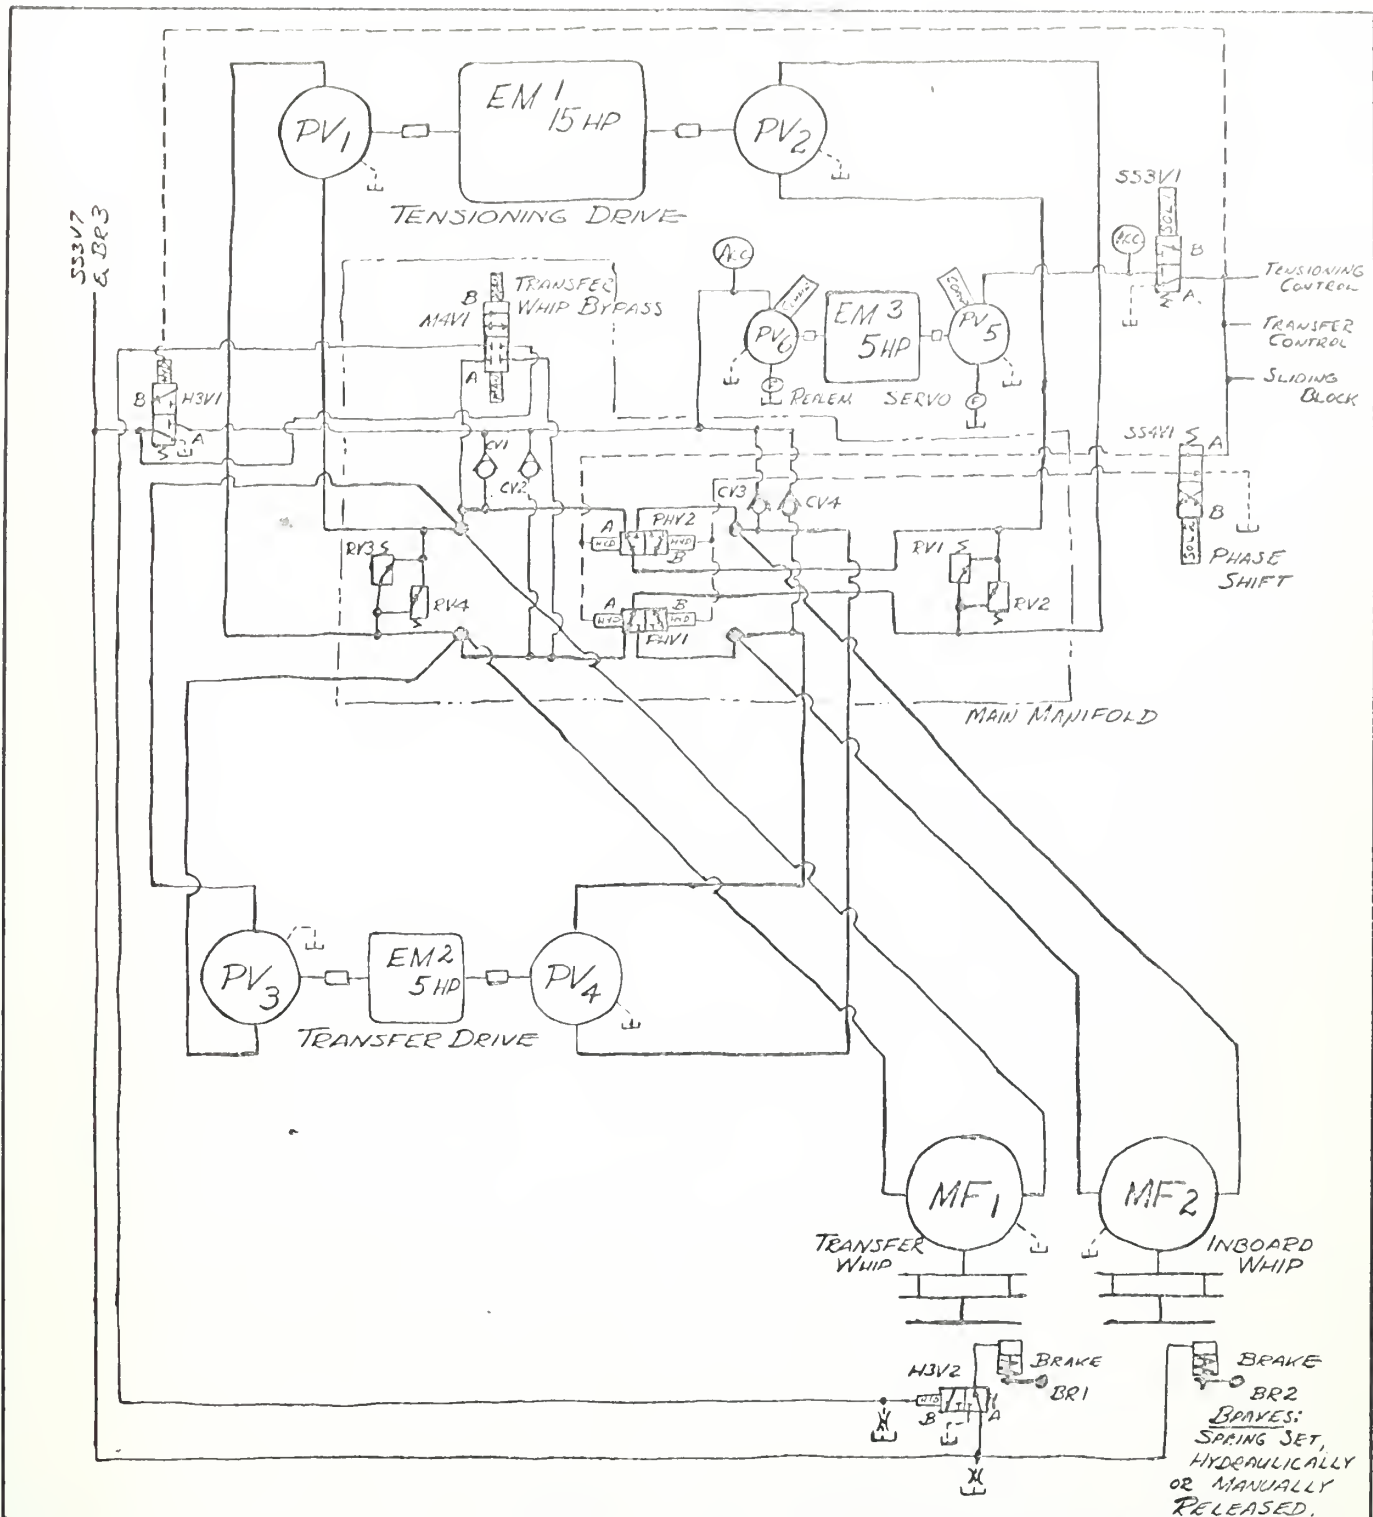 EM 1
15 HP
PV1
PV2
TENSIONING DRIVE
SS3V1
SOL 1
B
A
ACC
TENSIONING
CONTROL
TRANSFER
CONTROL
SLIDING
BLOCK
SS3V7
& BR3
ACC
TRANSFER
WHIP BYPASS
B
M4V1
A
PV6
EM 3
5 HP
PV5
F
F
REPLEN. SERVO
B
H3V1
A
CV1
CV2
CV3
CV4
SS4V1
A
B
SOL 2
PHASE
SHIFT
A
PHV2
HYD
HYD
B
RV3
RV4
RV1
RV2
A
B
HYD
HYD
PHV1
MAIN MANIFOLD
PV3
EM 2
5 HP
PV4
TRANSFER DRIVE
MF1
MF2
TRANSFER
WHIP
INBOARD
WHIP
H3V2
HYD
B
A
BRAKE
BR1
BRAKE
BR2
BRAKES:
SPRING SET,
HYDRAULICALLY
OR MANUALLY
RELEASED.